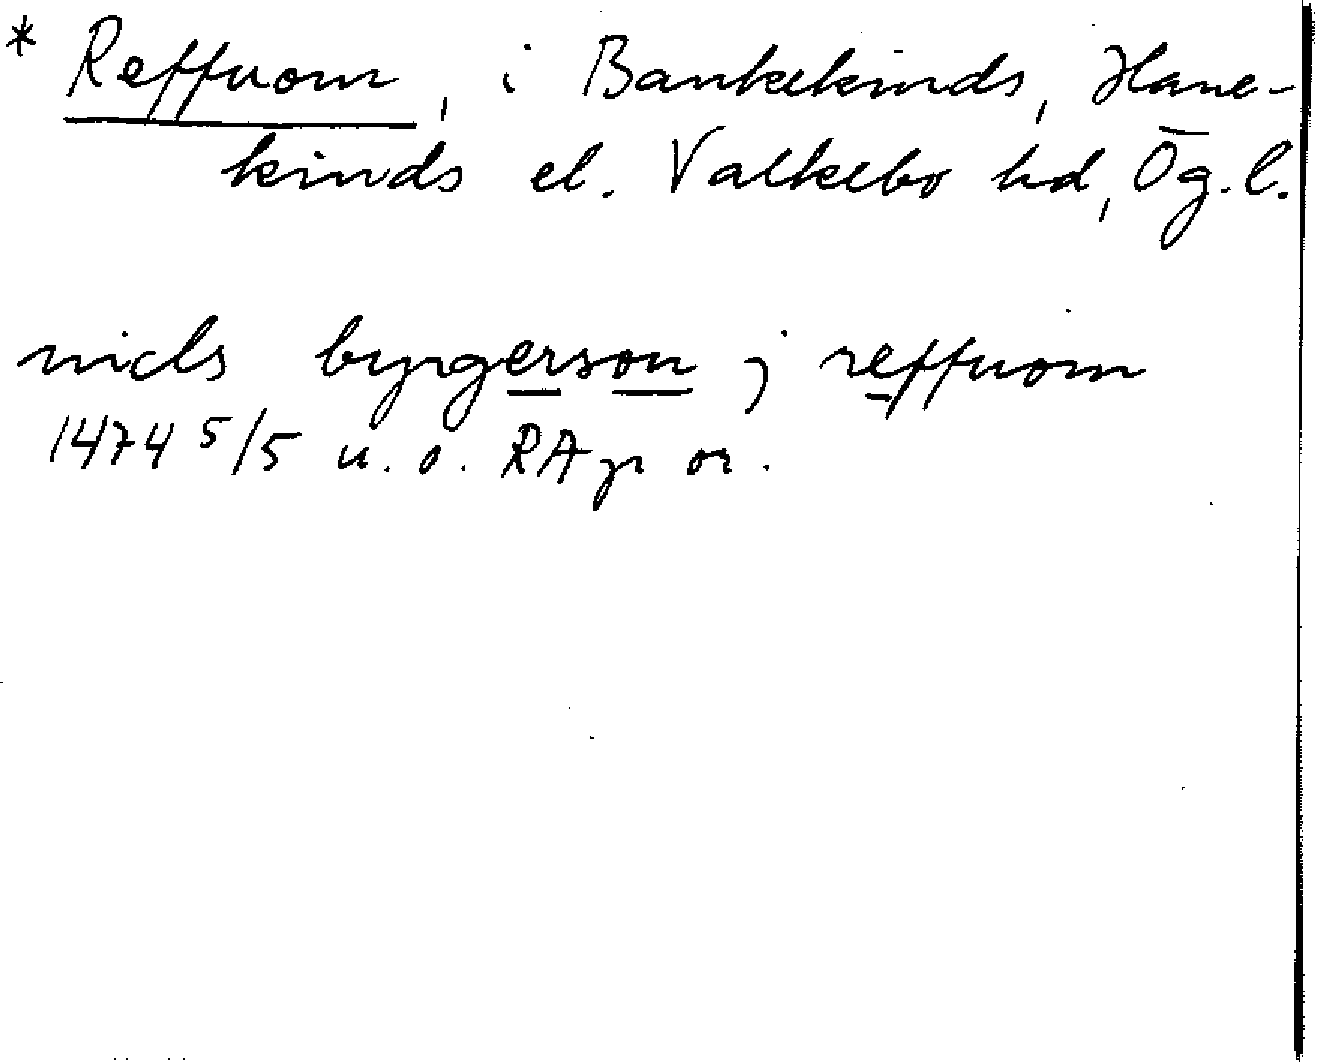 * Reffuom, i Bankekinds, Hane-
kinds el. Valkebo hd, Ög. l.
nicls byrgerson j reffuom
1474 5/5 u. o. RAp or.